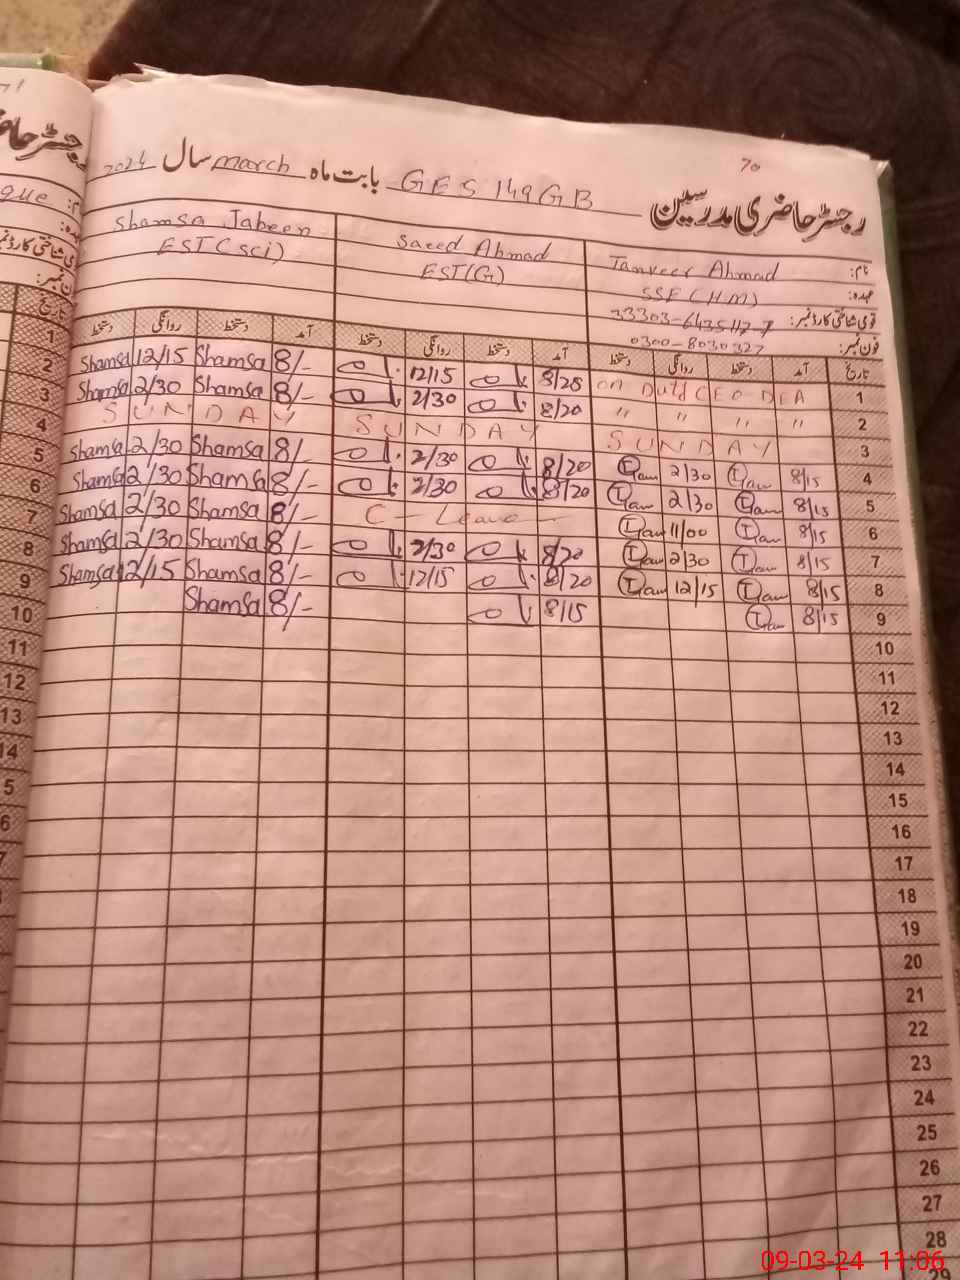 70
رجسٹر حاضری مدرسین GES 149GB بابت ماہ march سال 2024
نام: Tanveer Ahmad Saeed Ahmad Shamsa Jabeen
عہدہ: SSE (HM) EST(G) EST(sci)
قومی شناختی کارڈ نمبر: 33303-6435117-7
فون نمبر: 0300-8030327
تاریخ آمد دستخط روانگی دستخط آمد دستخط روانگی دستخط آمد دستخط روانگی دستخط
1 on Duty CEO DEA 8/20 12/15 8/- Shamsa 12/15 Shamsa
2 " " " " 8/20 2/30 8/- Shamsa 2/30 Shamsa
3 SUNDAY SUNDAY SUNDAY
4 8/15 2/30 8/20 2/30 8/- Shamsa 2/30 Shamsa
5 8/15 2/30 8/20 2/30 8/- Shamsa 2/30 Shamsa
6 8/15 11/00 C-Leave 8/- Shamsa 2/30 Shamsa
7 8/15 2/30 8/20 2/30 8/- Shamsa 2/30 Shamsa
8 8/15 12/15 8/20 12/15 8/- Shamsa 12/15 Shamsa
9 8/15 8/15 8/- Shamsa
10
11
12
13
14
15
16
17
18
19
20
21
22
23
24
25
26
27
28
29
09-03-24 11:06